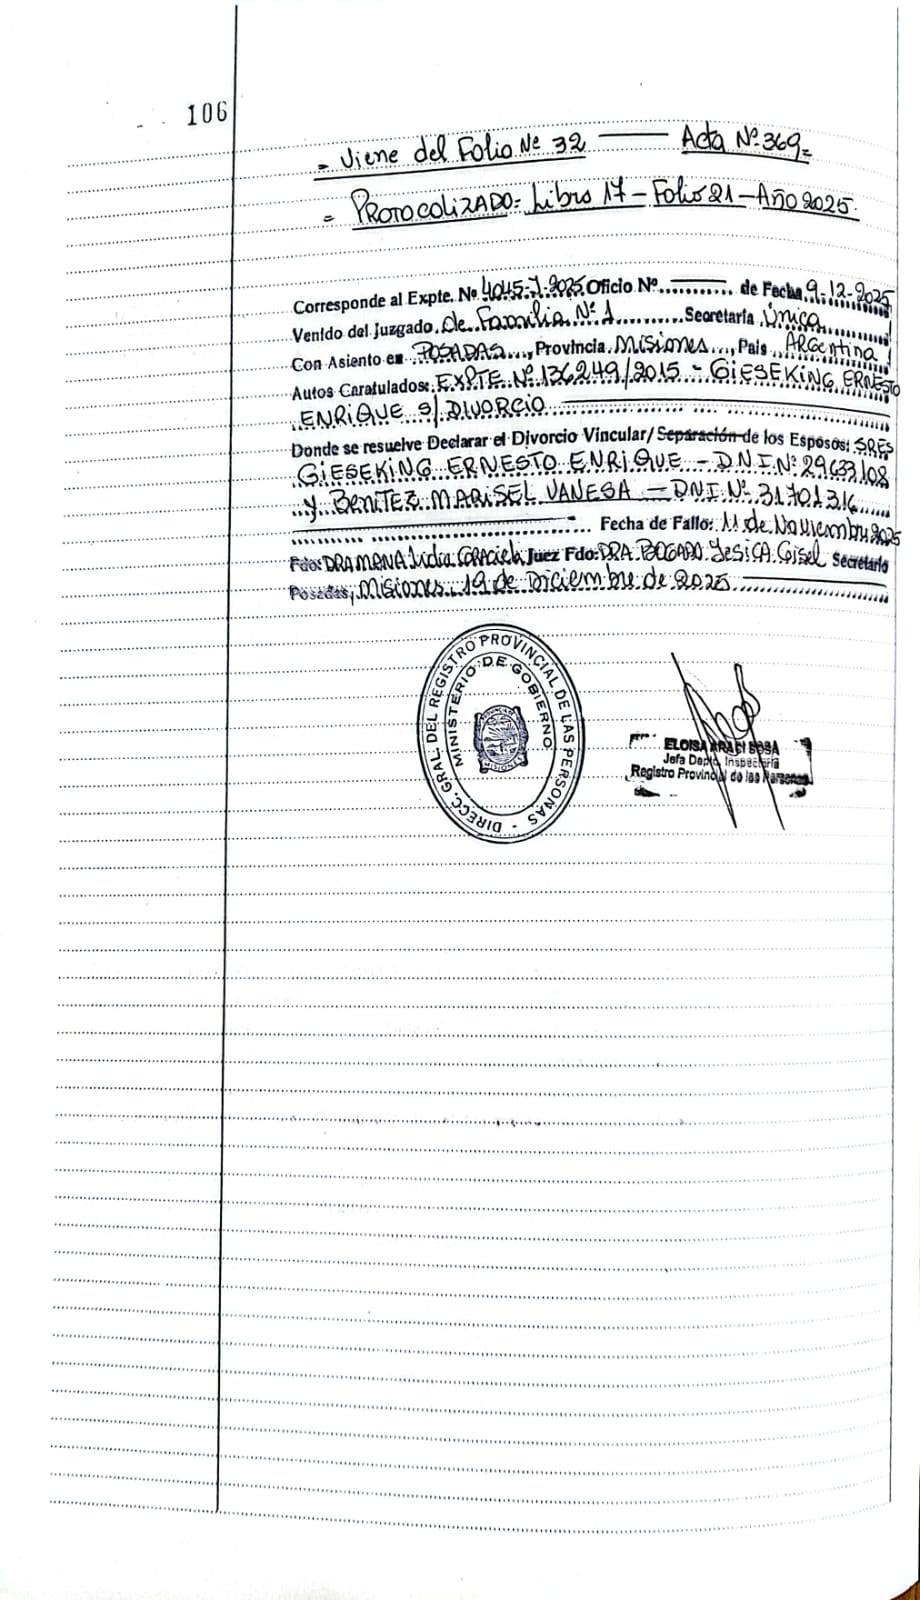 106
= Viene del Folio Nº 32 ——— Acta Nº 369=
= PROTOCOLIZADO= Libro 17 – Folio 21 – Año 2025.
Corresponde al Expte. Nº 4045-J-2025 Oficio Nº ........... de Fecha 9-12-2025
Venido del Juzgado de Familia Nº 1 ......... Secretaría Única
Con Asiento en POSADAS...., Provincia Misiones..., Pais ARGentina
Autos Caratulados: EXPTE Nº 136249/2015 - GIESEKING ERNESTO
ENRIQUE s/ DIVORCIO
Donde se resuelve Declarar el Divorcio Vincular/ Separación de los Esposos: SRES
GIESEKING ERNESTO ENRIQUE – D.N.I. Nº 29633108
y BENITEZ MARISEL VANESA – DNI. Nº 31701316
Fecha de Fallo: 11 de Noviembre 2025
Fdo: DRA MANA Lidia GRACIELA Juez Fdo: DRA. BOGADO YESICA Gisel Secretario
Posadas, Misiones, 19 de Diciembre de 2025
DIRECC. GRAL. DEL REGISTRO PROVINCIAL DE LAS PERSONAS -
MINISTERIO DE GOBIERNO
MISIONES
ELOISA ARACI SOSA
Jefa Depto. Inspectoría
Registro Provincial de las Personas